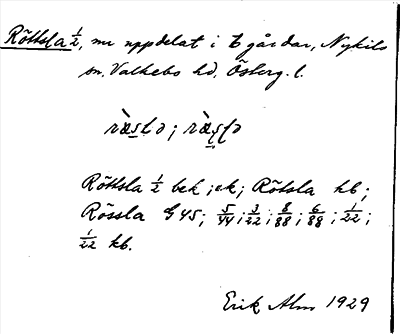 Röttsla 1/2, nu uppdelat i 6 gårdar, Nykils
sn. Valkebo hd. Österg. l.
Röttsla 1/2 bek ; ek ; Rötsla hb ;
Rössla G 45 ; 5/44 ; 3/22 ; 8/88 ; 6/88 ; 1/22 ;
1/22 kb.
Erik Alm 1929